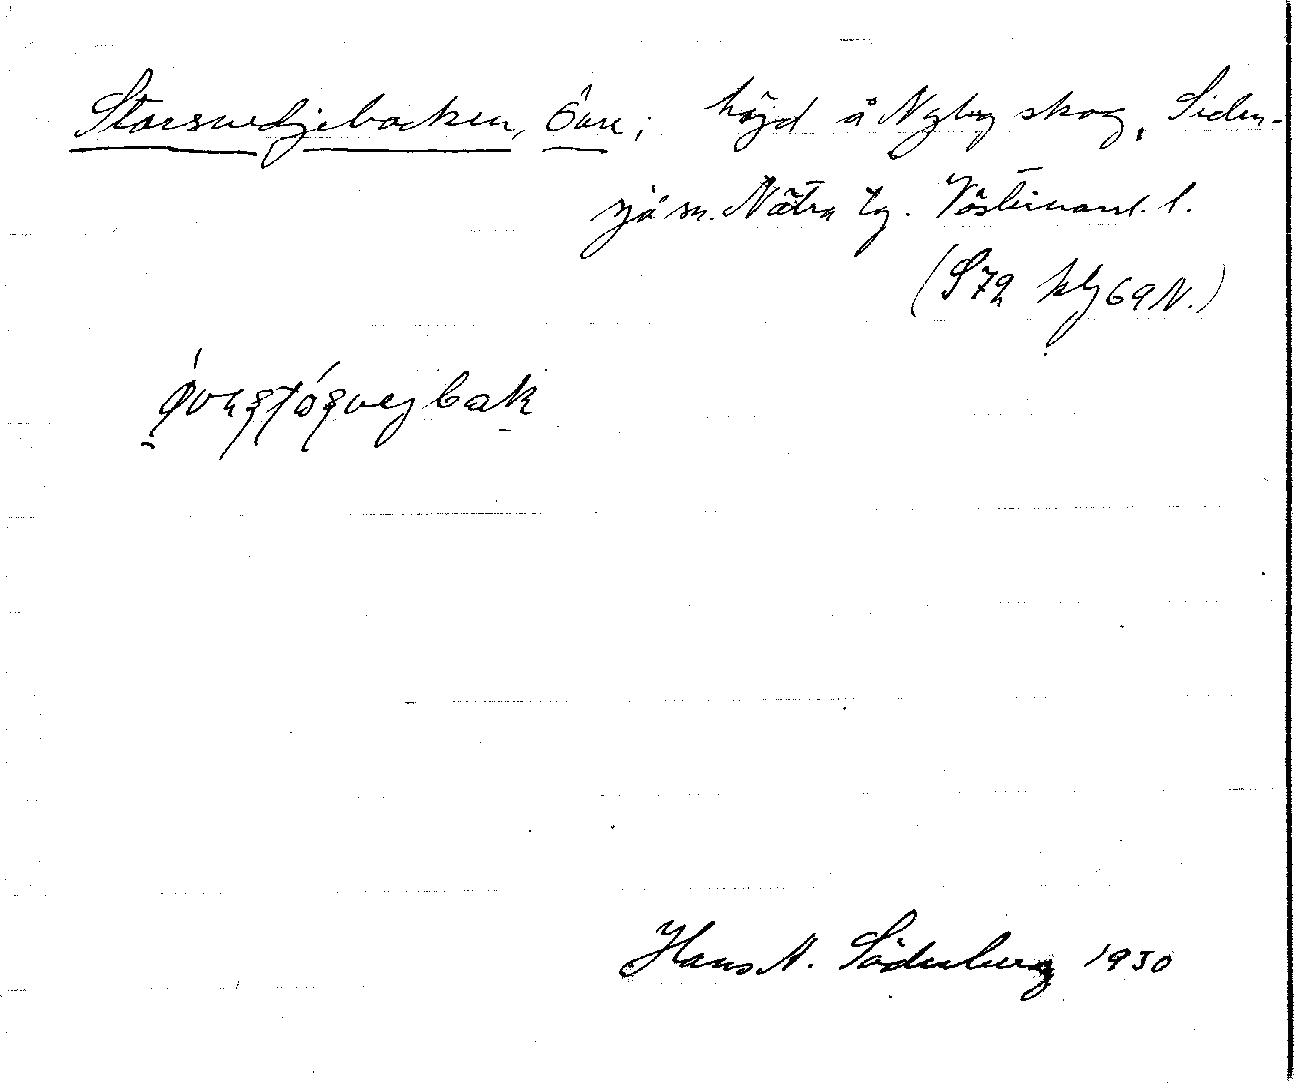 Storsvedjebacken, Övre; höjd å Nyby skog, Siden-
sjö sn. Nätra tg. Västernorrl. l.
(S72 blg 69 N.)
Hans A. Söderberg 1930